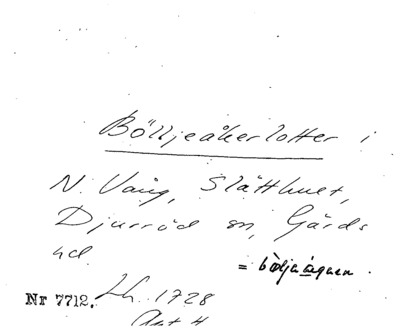 Bölljeåkerlotter i
N. Vång, Slätthult,
Djurröd sn, Gärds
hd
= böljaängen.
Nr 7712. Lh. 1728
Akt 4